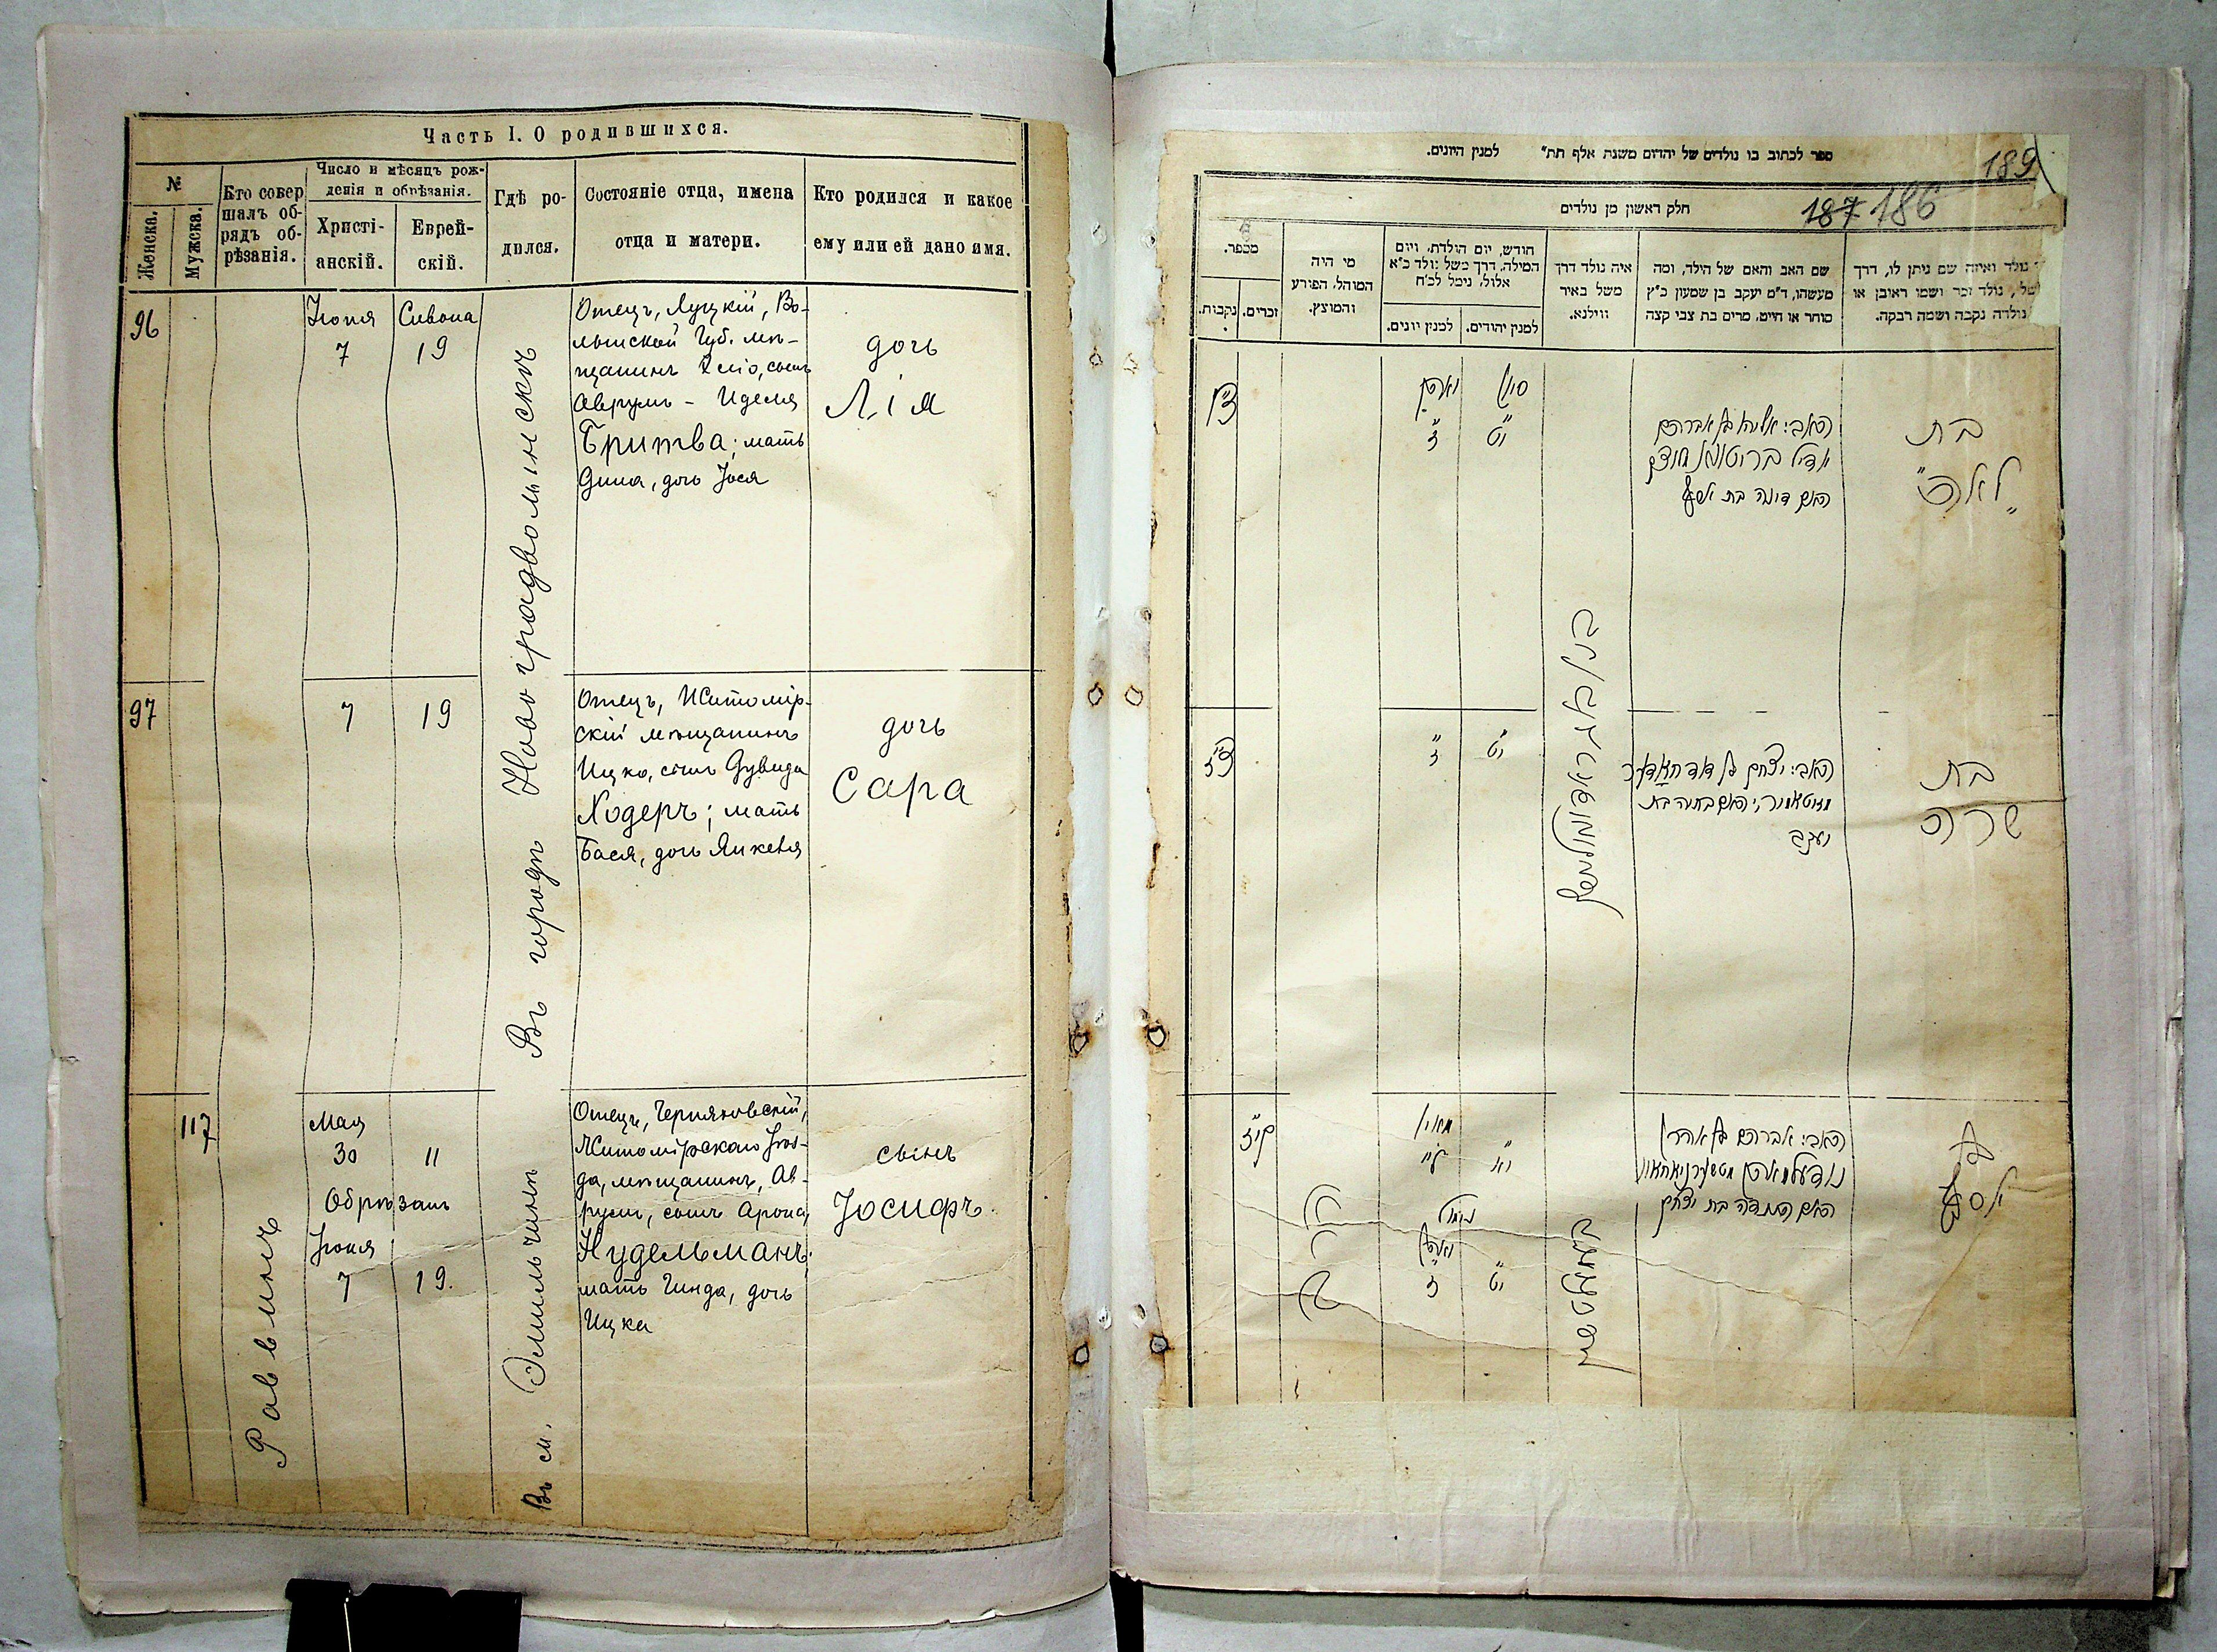 Часть I. О родившихся.
№
Женска.
Мужска.
Кто совер
шалъ об-
рядъ об-
рѣзанія.
Число и мѣсяцъ рож-
денія и обрѣзанія.
Христі-
анскій.
Еврей-
скій.
Гдѣ ро-
дился.
Состояніе отца, имена
отца и матери.
Кто родился и какое
ему или ей дано имя.
96
Іюня
7
Сивона
19
Въ городѣ Новоградволынскѣ
Отецъ, Луцкій, Во-
лынской Губ. мѣ-
щанинъ Эліо, сынъ
Аврумъ - Иделя
Бритва; мать
Дина, дочь Іося
дочь
Лія
97
7
19
Отецъ, Житомір-
скій мѣщанинъ
Ицко, сынъ Дувида
Ходеръ; мать
Бася, дочь Янкеля
дочь
Сара
117
Раввинъ
Мая
30 11
Обрѣзанъ
Іюня
7 19.
Въ м. Эмильчинѣ
Отецъ, Черняховскій,
Житомірскаго Уѣз-
да, мѣщанинъ, Ав-
румъ, сынъ Арона,
Нудельманъ;
мать Гинда, дочь
Ицка
сынъ
Іосифъ
ספר לכתוב בו נולדים של יהדום משנת אלף תת״ למנין היונים.
189
187 186
חלק ראשון מן נולדים
מספר.
נקבות.
זכרים.
מי היה
המוהל, הפורע
והמוצץ.
חודש, יום הולדת, ויום
המילה, דרך משל נולד כ״א
אלול, נימל לכ״ח
למנין יונים.
למנין יהודים.
איה נולד דרך
משל באיר
ווילנא.
שם האב והאם של הילד, ומה
מעשהו, ד״מ יעקב בן שמעון כ״ץ
סוחר או חייט, מרים בת צבי קצה
נולד ואיזה שם ניתן לו, דרך
משל, נולד זכר ושמו ראובן או
נולדה נקבה ושמה רבקה.
צ״ו
ז״
סיון
י״ט
האבי: אליהו בן אברהם
האם דינה בת
בת
„לאה״
צ״ז
ז״
י״ט
האבי: יצחק בן דוד
יעקב
בת
שרה
קי״ז
ל״
י״א
ז״
י״ט
האבי: אברהם בן אהרן
האם בת יצחק
בן
יוסף